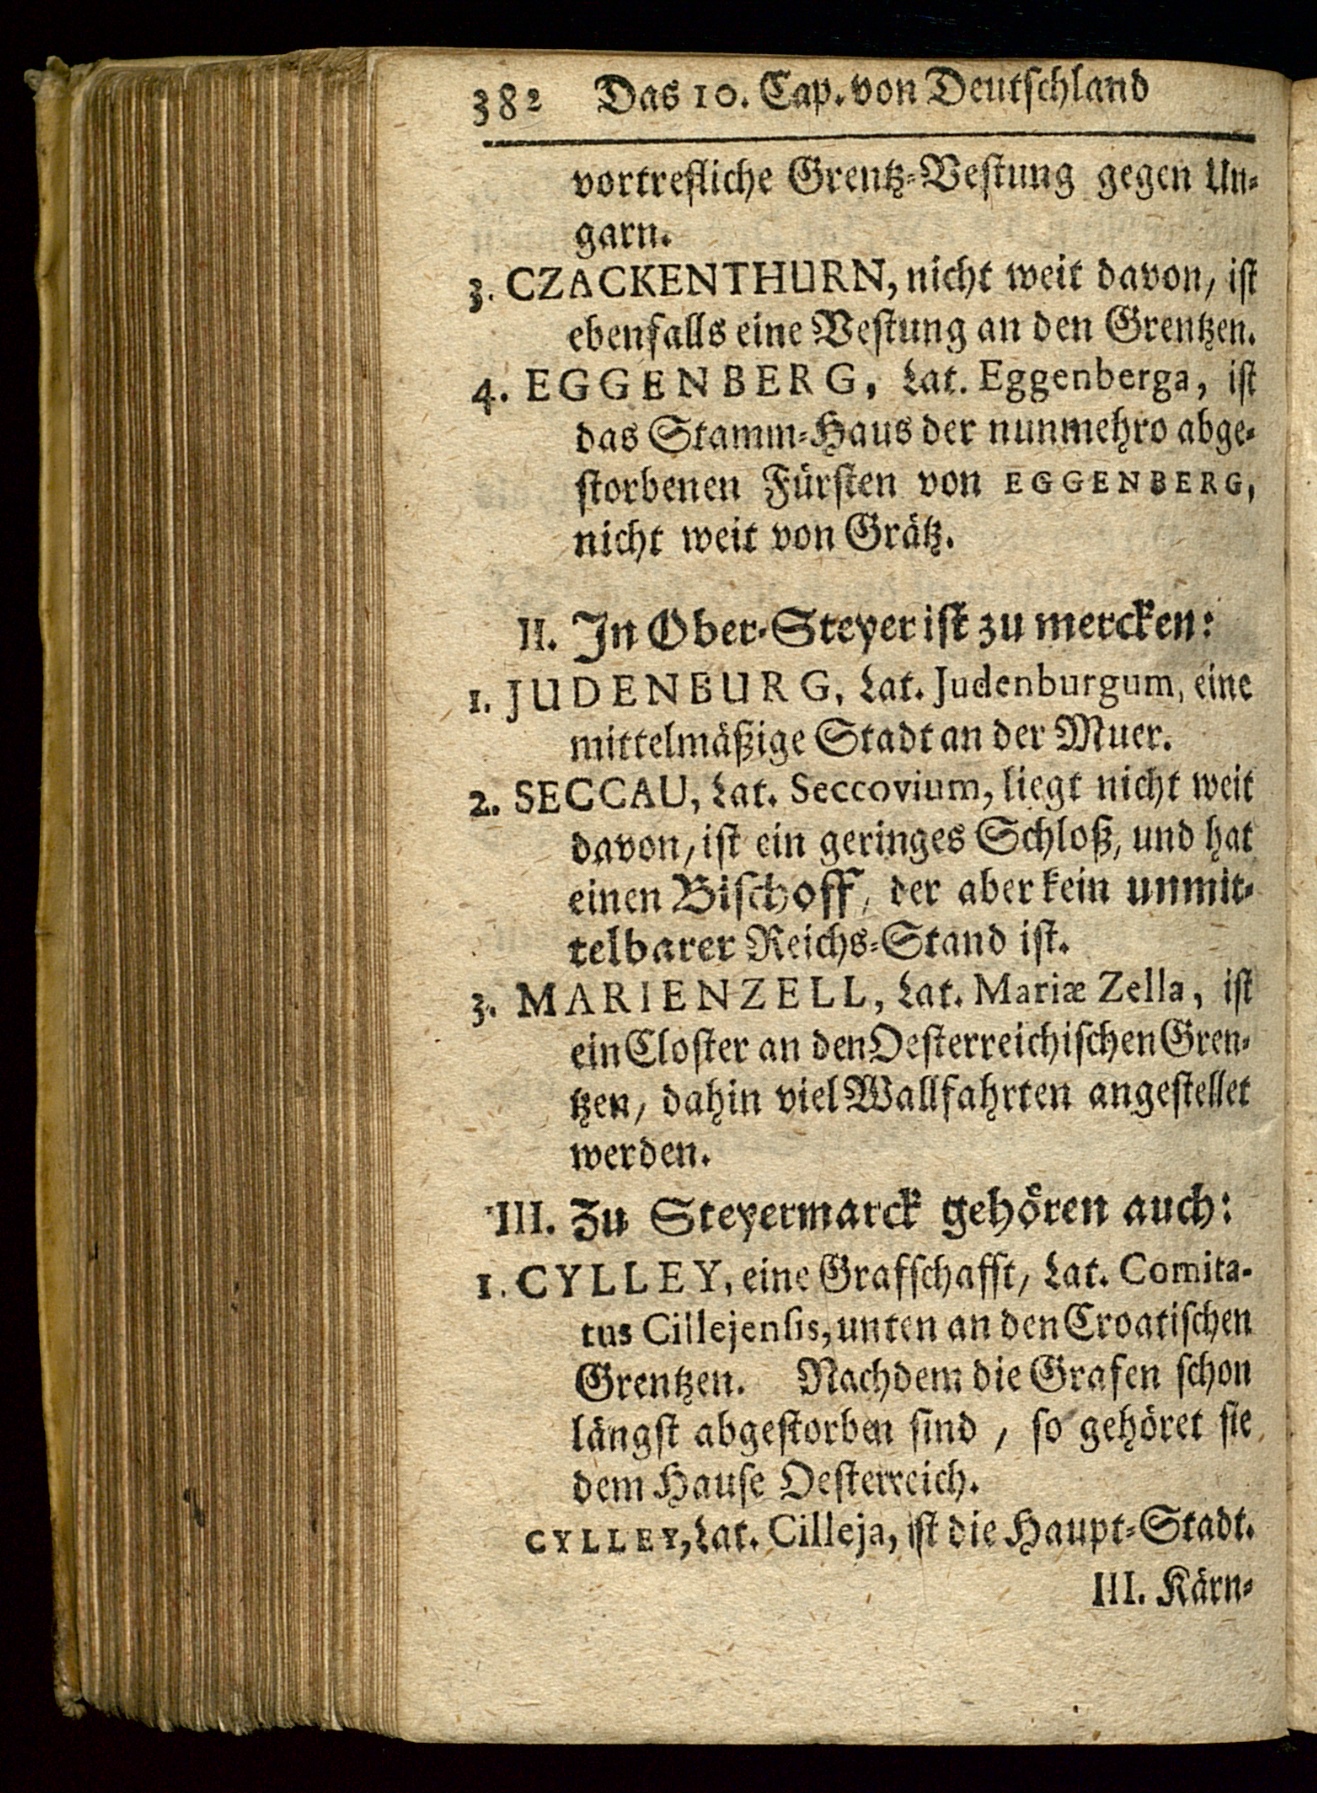 382 Das 10. Cap. von Deutschland
vortrefliche Grentz-Vestung gegen Un-
garn.
3. CZACKENTHURN, nicht weit davon, ist
ebenfalls eine Vestung an den Grentzen.
4. EGGENBERG, Lat. Eggenberga, ist
das Stamm-Haus der nunmehro abge-
storbenen Fürsten von EGGENBERG,
nicht weit von Grätz.
II. In Ober-Steyer ist zu mercken:
1. JUDENBURG, Lat. Judenburgum, eine
mittelmäßige Stadt an der Muer.
2. SECCAU, Lat. Seccovium, liegt nicht weit
davon, ist ein geringes Schloß, und hat
einen Bischoff, der aber kein unmit-
telbarer Reichs-Stand ist.
3. MARIENZELL, Lat. Mariæ Zella, ist
ein Closter an den Oesterreichischen Gren-
tzen, dahin viel Wallfahrten angestellet
werden.
III. Zu Steyermarck gehören auch:
1. CYLLEY, eine Grafschafft, Lat. Comita-
tus Cillejensis, unten an den Croatischen
Grentzen. Nachdem die Grafen schon
längst abgestorben sind, so gehöret sie
dem Hause Oesterreich.
CYLLEY, Lat. Cilleja, ist die Haupt-Stadt.
III. Kärn-